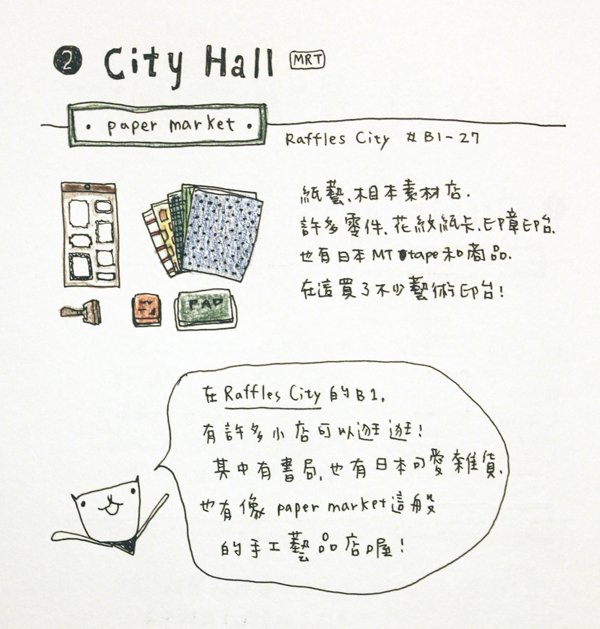 2 City Hall MRT
• paper market •
Raffles City #B1-27
紙藝、相本素材店.
許多零件、花紋紙卡、印章印台.
也有日本MT tape和商品.
在這買了不少藝術印台!
PAD
在 Raffles City 的B1,
有許多小店可以逛逛!
其中有書局,也有日本可愛雜貨,
也有像 paper market這般
的手工藝品店喔!